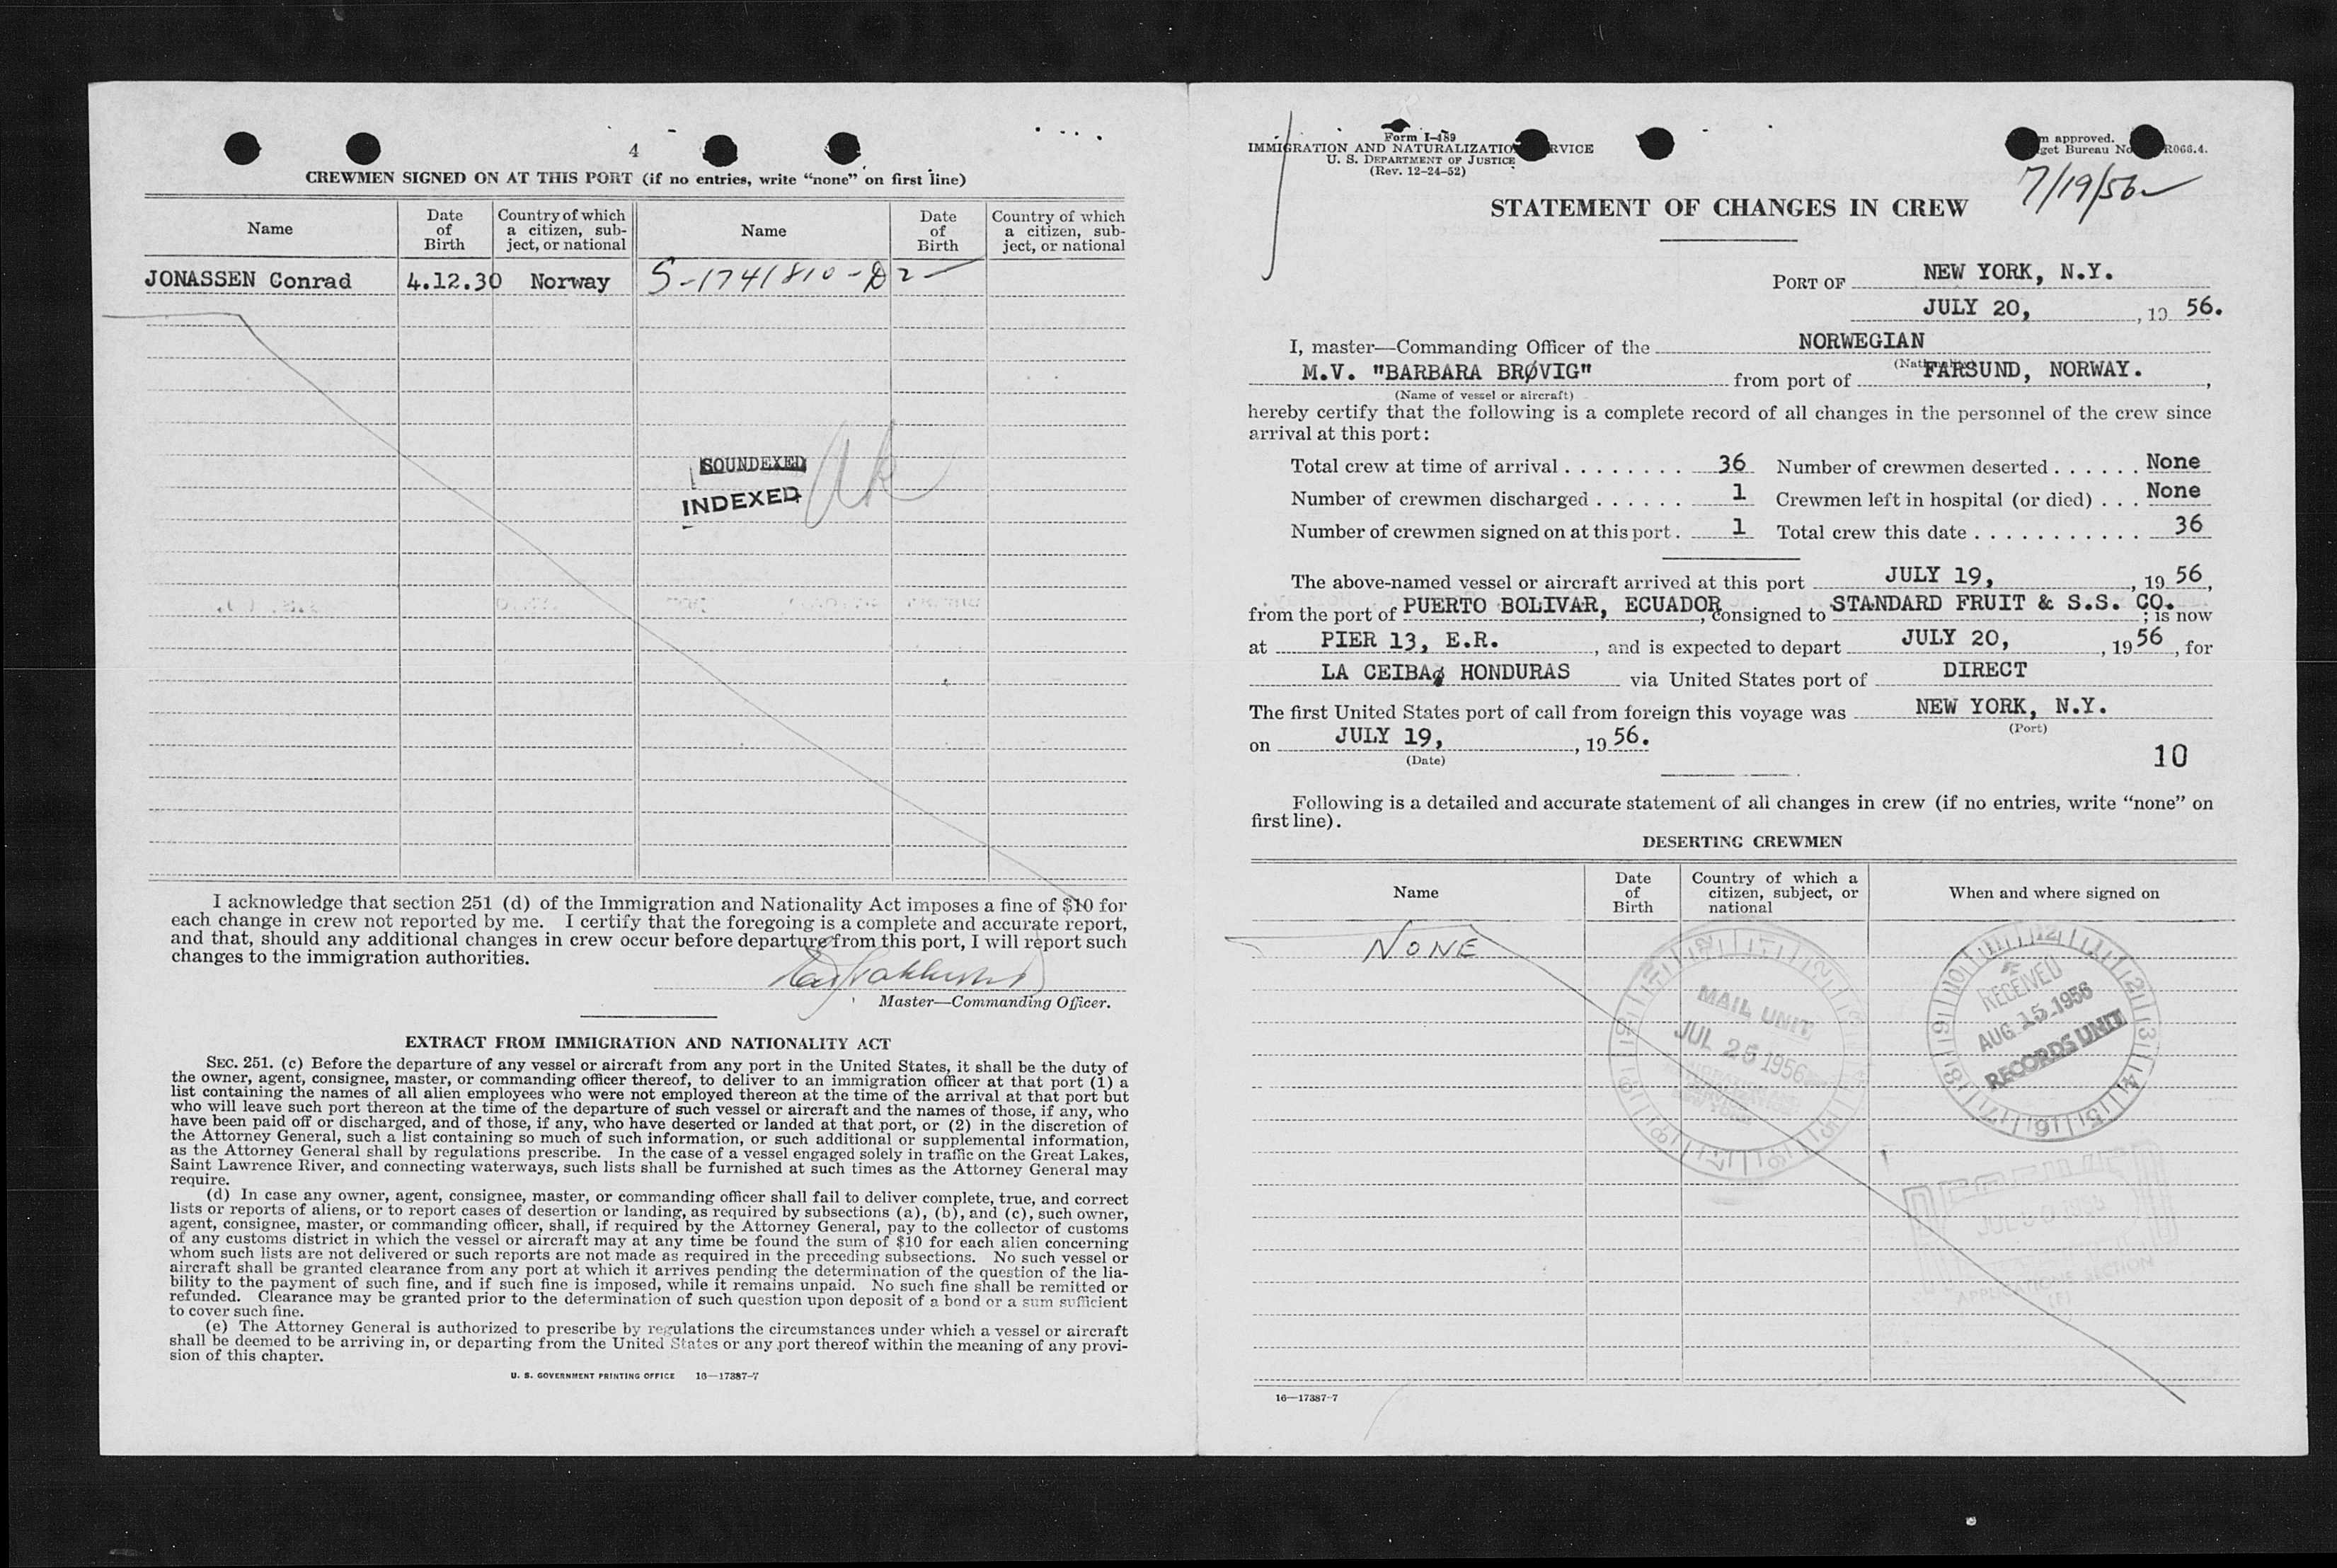 4
CREWMEN SIGNED ON AT THIS PORT (if no entries, write “none” on first line)
Name
Date of Birth
Country of which a citizen, subject, or national
Name
Date of Birth
Country of which a citizen, subject, or national
JONASSEN Conrad 4.12.30 Norway S-1741810-D2-
SOUNDEXED
INDEXED
I acknowledge that section 251 (d) of the Immigration and Nationality Act imposes a fine of $10 for
each change in crew not reported by me. I certify that the foregoing is a complete and accurate report,
and that, should any additional changes in crew occur before departure from this port, I will report such
changes to the immigration authorities.
Master—Commanding Officer.
EXTRACT FROM IMMIGRATION AND NATIONALITY ACT
SEC. 251. (c) Before the departure of any vessel or aircraft from any port in the United States, it shall be the duty of
the owner, agent, consignee, master, or commanding officer thereof, to deliver to an immigration officer at that port (1) a
list containing the names of all alien employees who were not employed thereon at the time of the arrival at that port but
who will leave such port thereon at the time of the departure of such vessel or aircraft and the names of those, if any, who
have been paid off or discharged, and of those, if any, who have deserted or landed at that port, or (2) in the discretion of
the Attorney General, such a list containing so much of such information, or such additional or supplemental information,
as the Attorney General shall by regulations prescribe. In the case of a vessel engaged solely in traffic on the Great Lakes,
Saint Lawrence River, and connecting waterways, such lists shall be furnished at such times as the Attorney General may
require.
(d) In case any owner, agent, consignee, master, or commanding officer shall fail to deliver complete, true, and correct
lists or reports of aliens, or to report cases of desertion or landing, as required by subsections (a), (b), and (c), such owner,
agent, consignee, master, or commanding officer, shall, if required by the Attorney General, pay to the collector of customs
of any customs district in which the vessel or aircraft may at any time be found the sum of $10 for each alien concerning
whom such lists are not delivered or such reports are not made as required in the preceding subsections. No such vessel or
aircraft shall be granted clearance from any port at which it arrives pending the determination of the question of the lia-
bility to the payment of such fine, and if such fine is imposed, while it remains unpaid. No such fine shall be remitted or
refunded. Clearance may be granted prior to the determination of such question upon deposit of a bond or a sum sufficient
to cover such fine.
(e) The Attorney General is authorized to prescribe by regulations the circumstances under which a vessel or aircraft
shall be deemed to be arriving in, or departing from the United States or any port thereof within the meaning of any provi-
sion of this chapter.
U. S. GOVERNMENT PRINTING OFFICE 16—17387-7
Form I-489
IMMIGRATION AND NATURALIZATIO RVICE
U. S. DEPARTMENT OF JUSTICE
(Rev. 12-24-52)
m approved.
get Bureau No R066.4.
7/19/56
STATEMENT OF CHANGES IN CREW
PORT OF NEW YORK, N.Y.
JULY 20, , 19 56.
I, master—Commanding Officer of the NORWEGIAN
(Nationality)
M.V. "BARBARA BRØVIG" from port of FARSUND, NORWAY. ,
(Name of vessel or aircraft)
hereby certify that the following is a complete record of all changes in the personnel of the crew since
arrival at this port:
Total crew at time of arrival . . . . . . . . 36 Number of crewmen deserted . . . . . . None
Number of crewmen discharged . . . . . . 1 Crewmen left in hospital (or died) . . . None
Number of crewmen signed on at this port . 1 Total crew this date . . . . . . . . . . . 36
The above-named vessel or aircraft arrived at this port JULY 19, , 19 56,
from the port of PUERTO BOLIVAR, ECUADOR, consigned to STANDARD FRUIT & S.S. CO. ; is now
at PIER 13, E.R. , and is expected to depart JULY 20, , 19 56 , for
LA CEIBA, HONDURAS via United States port of DIRECT
The first United States port of call from foreign this voyage was NEW YORK, N.Y.
(Port)
on JULY 19, , 19 56.
(Date)
10
Following is a detailed and accurate statement of all changes in crew (if no entries, write “none” on
first line).
DESERTING CREWMEN
Name
Date of Birth
Country of which a citizen, subject, or national
When and where signed on
NONE
MAIL UNIT
JUL 25 1956
RECEIVED
AUG 15 1956
RECORDS UNIT
APPLICATIONS SECTION
16—17387-7